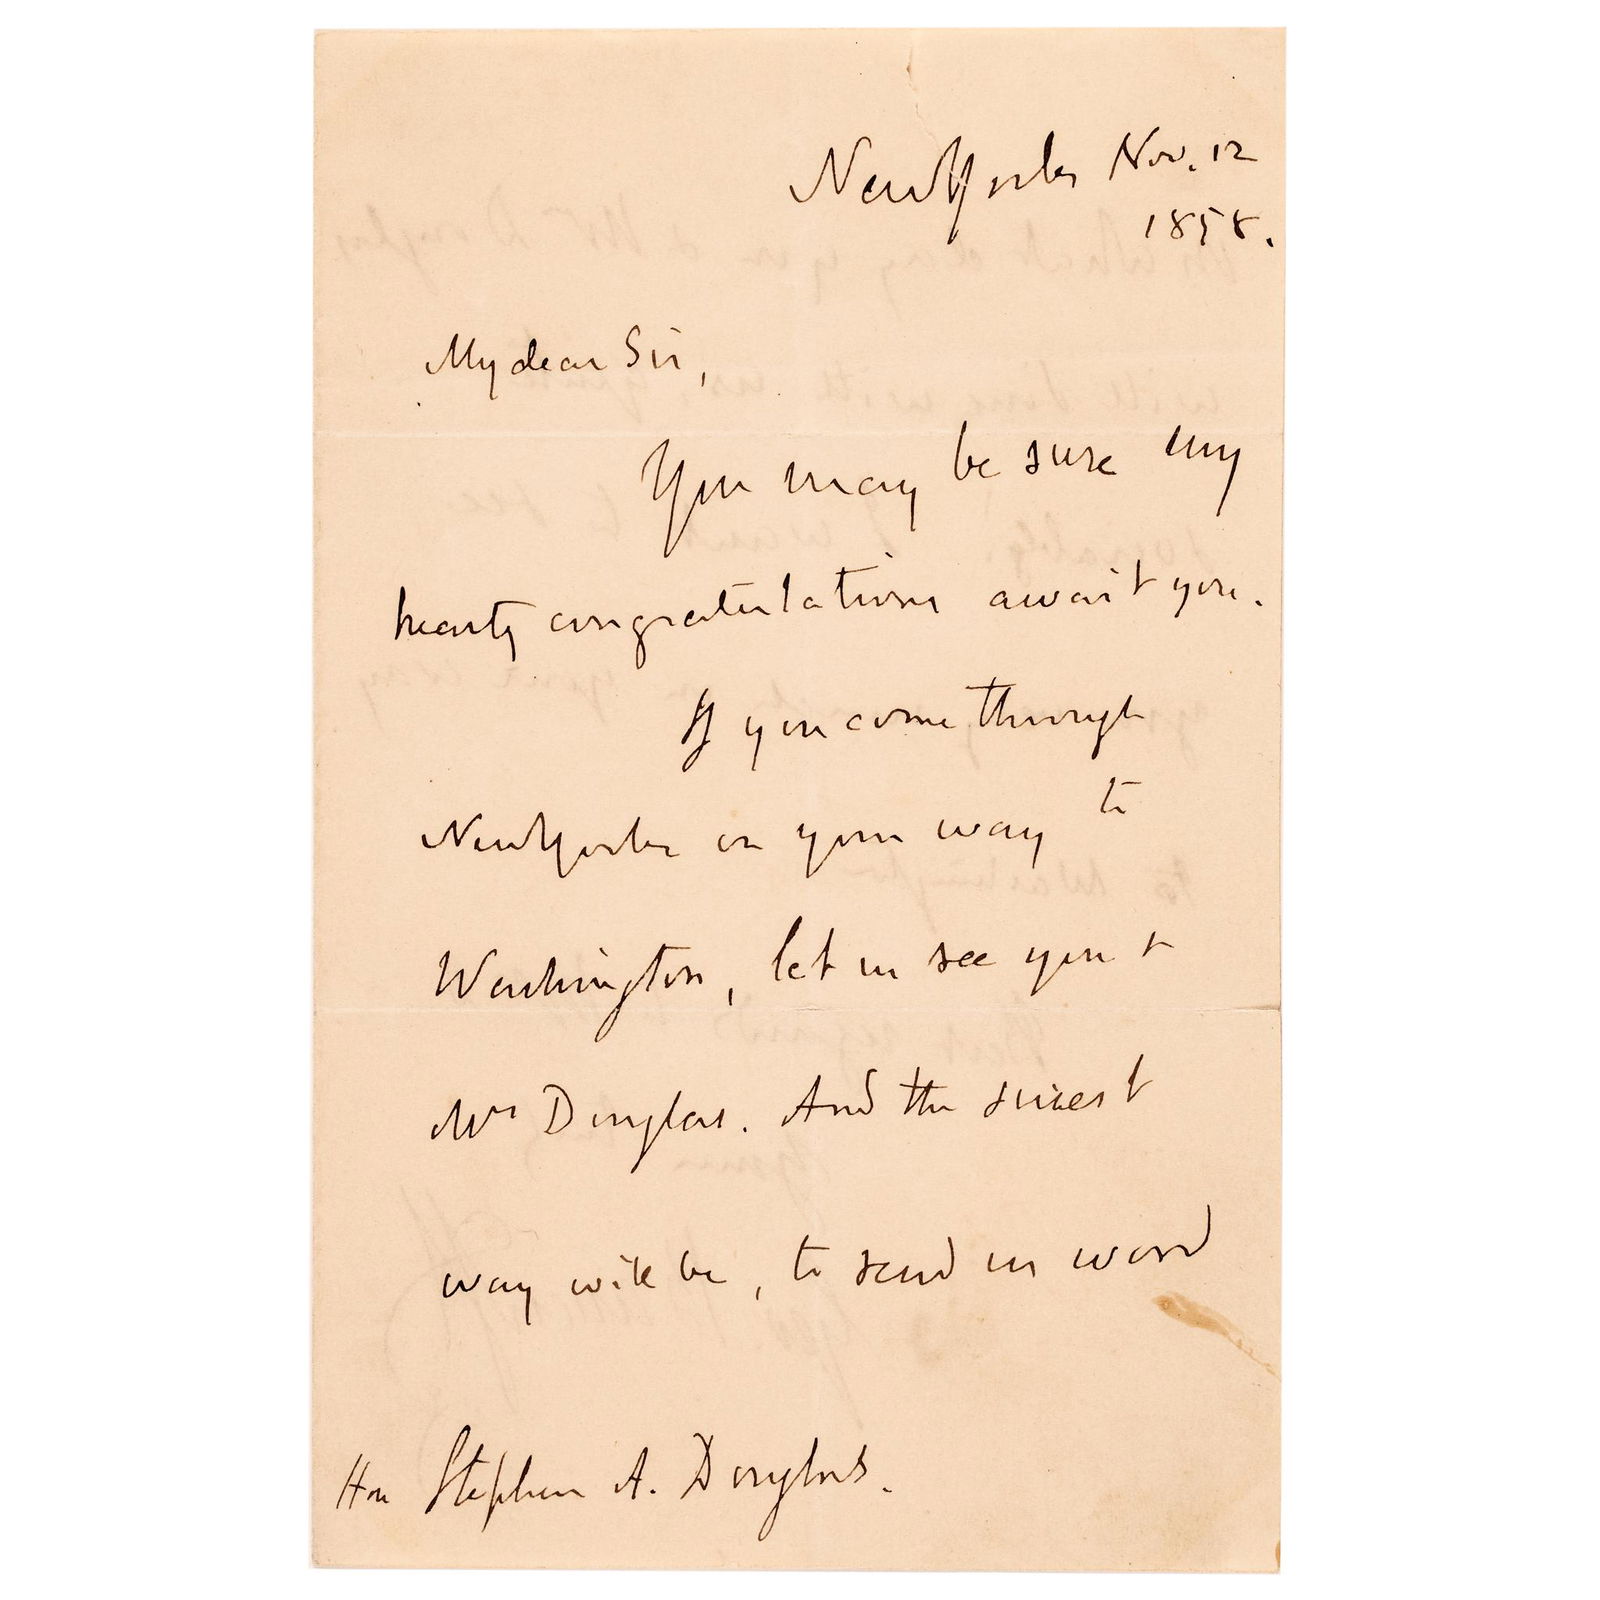 New York Nov. 12
1858.
My dear Sir,
You may be sure my
hearty congratulations await you.
If you come through
New York on your way to
Washington, let us see you &
Mrs Douglas. And the surest
way will be, to send us word
Hon Stephen A. Douglas.